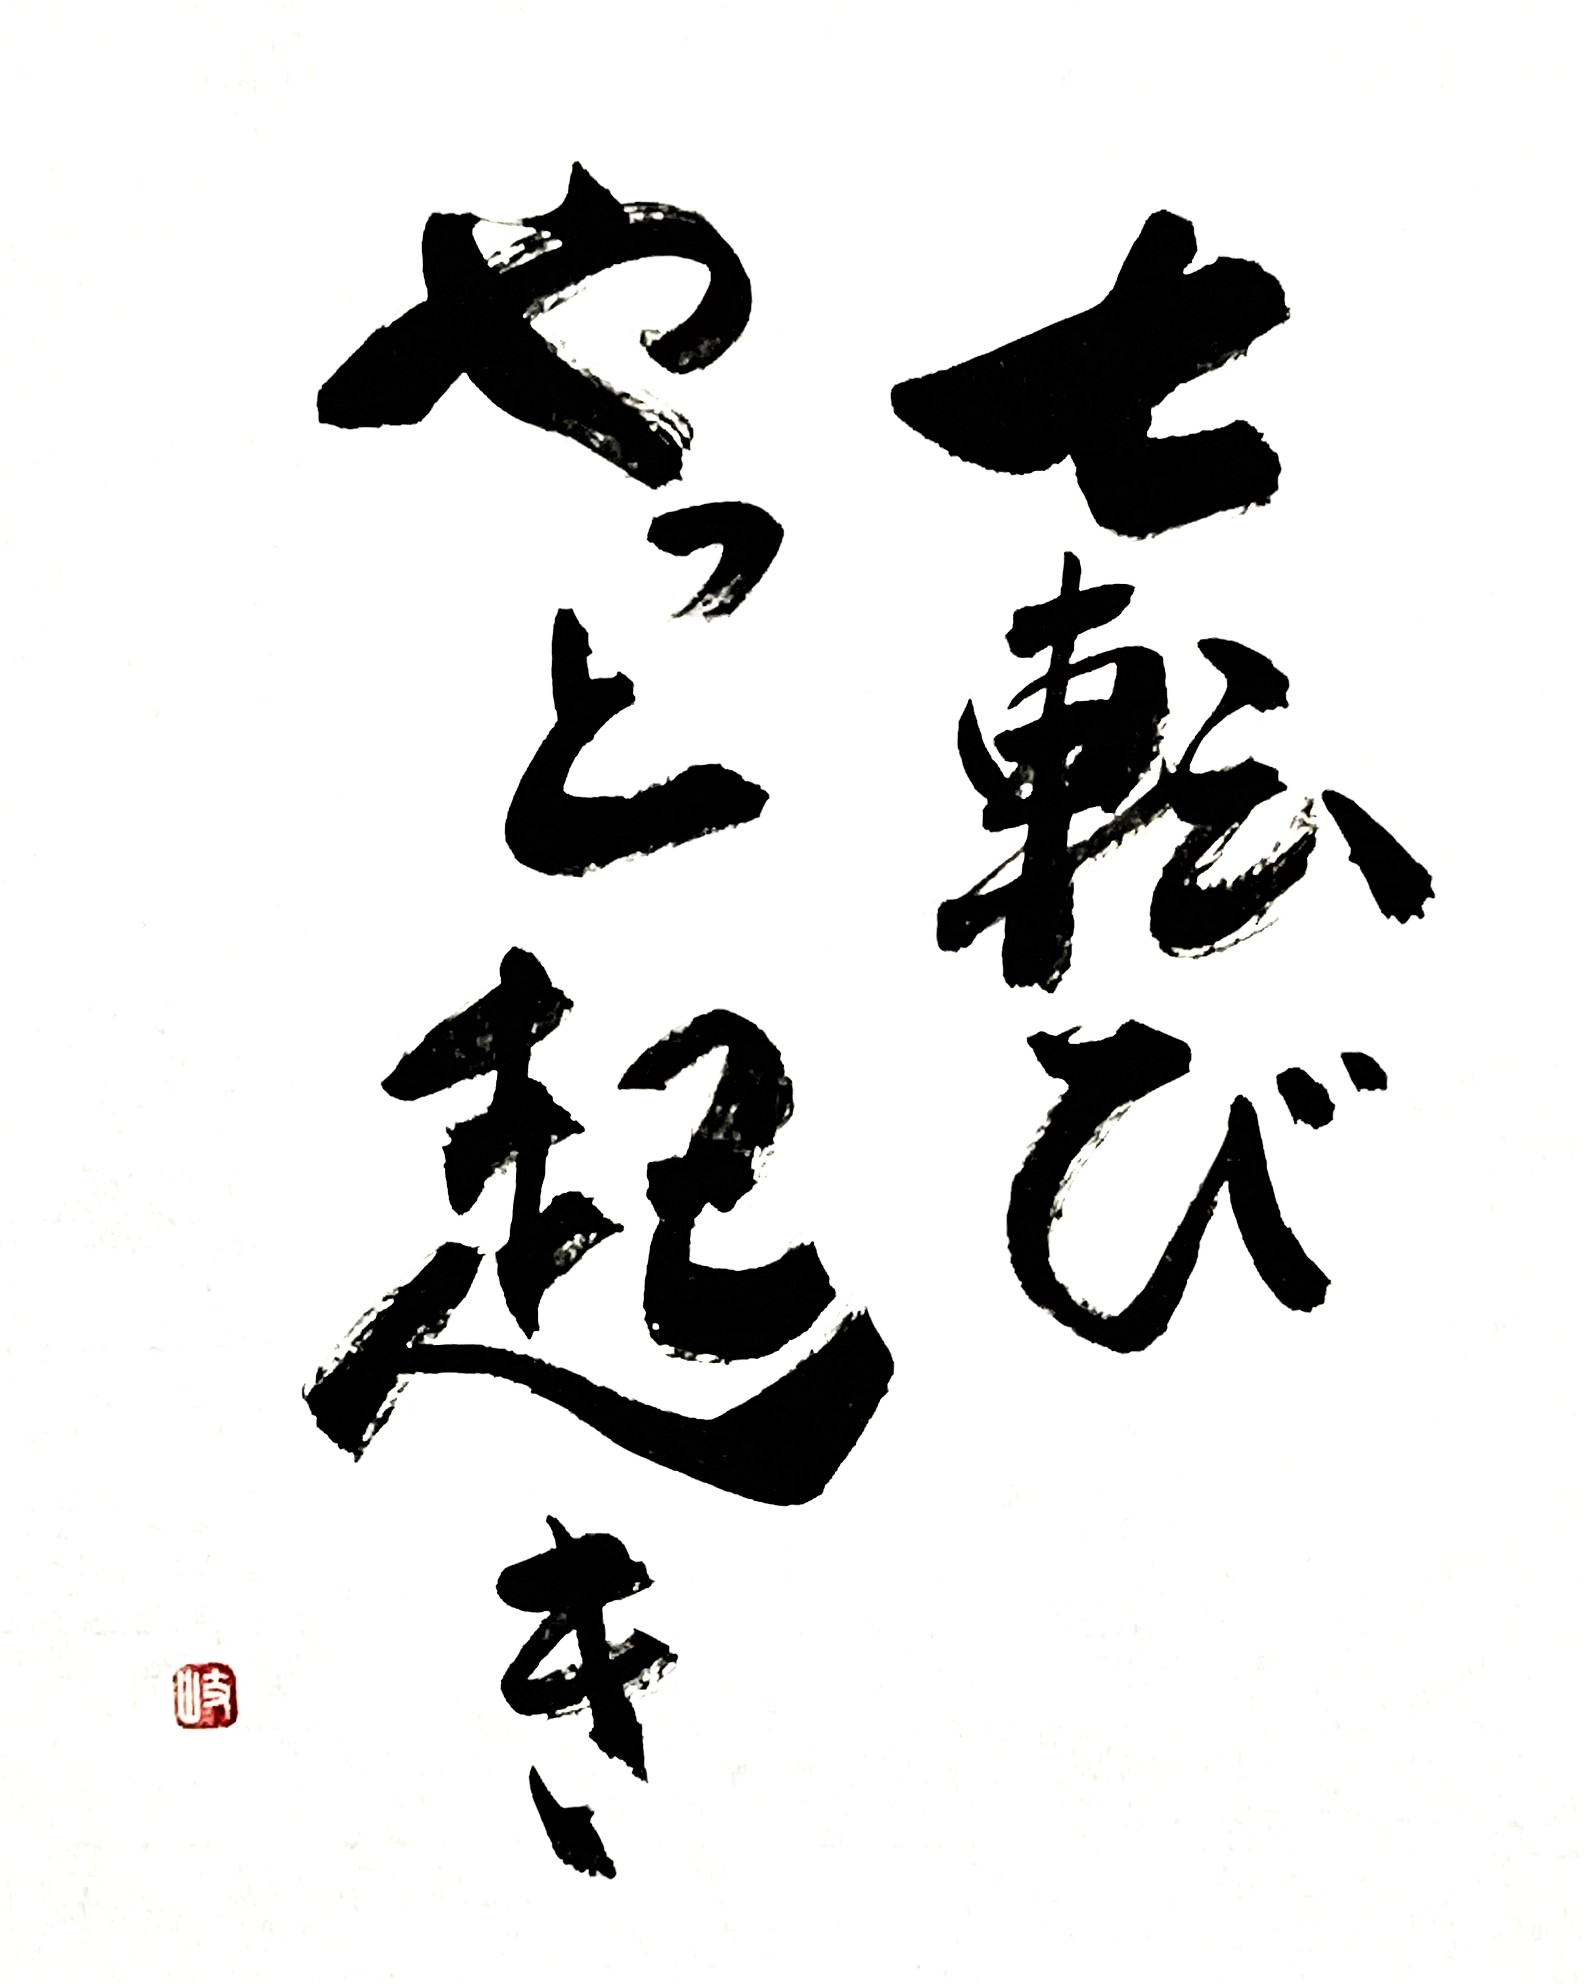 七転び
やっと起き
岐